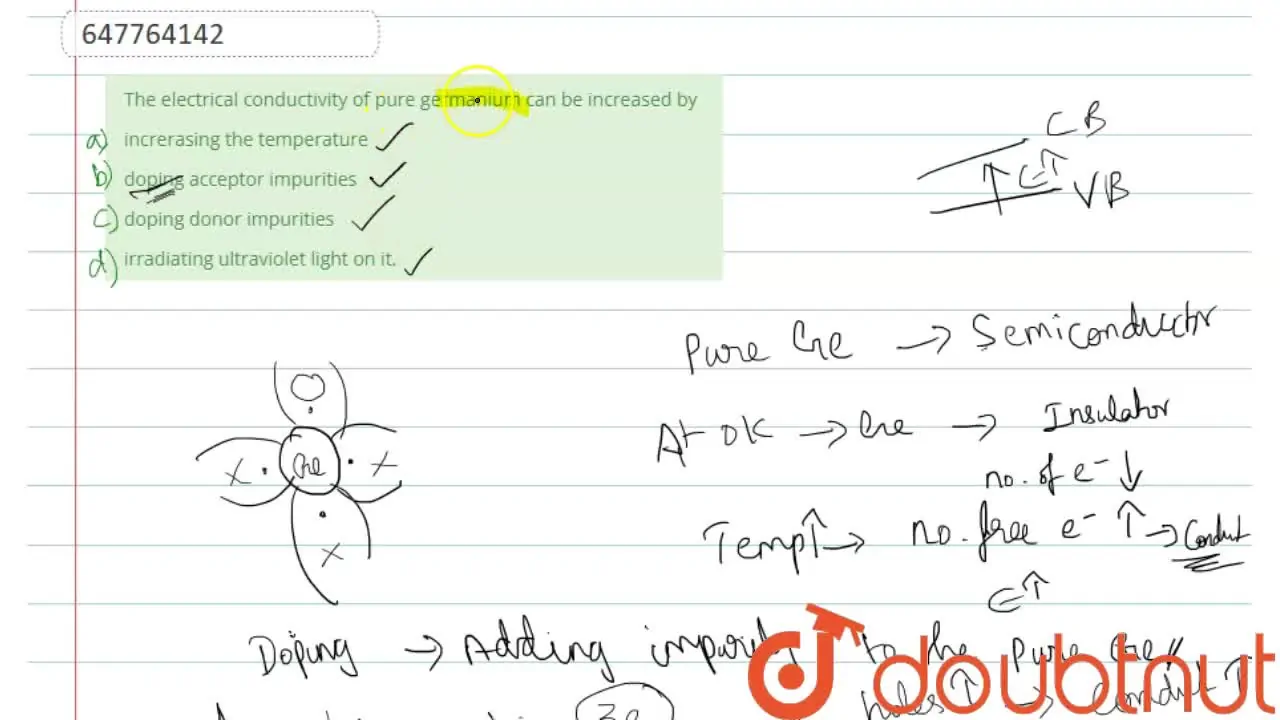 647764142
The electrical conductivity of pure germanium can be increased by
a) increrasing the temperature
b) doping acceptor impurities
c) doping donor impurities
d) irradiating ultraviolet light on it.
CB
E↑
VB
Pure Ge → Semiconductor
At 0K → Ge → Insulator
no. of e⁻ ↓
Temp↑ → no. free e⁻ ↑ → Conduct
E↑
Ge
Doping → Adding impurity to the pure Ge
holes ↑ → Conduct ↑
3e
doubtnut